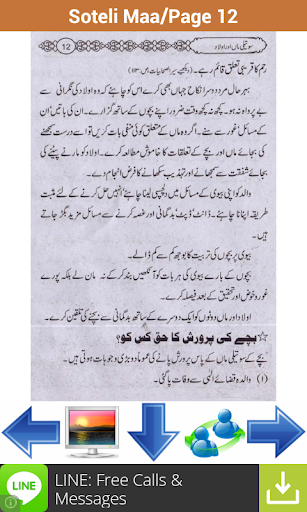 Soteli Maa/Page 12
سوتیلی ماں اور اولاد
12
رحم کا قریبی تعلق قائم رہے۔ (دیکھیے سیر الصحابیات ص ۱۳)
بہرحال مرد دوسرا نکاح جہاں بھی کرے اس کو چاہئے کہ وہ اولاد کی نگرانی سے
بے پرواہ نہ ہو۔ کچھ نہ کچھ وقت ضرور اپنے بچوں کے ساتھ گزارے۔ ان کی باتیں اُن
کے مسائل غور سے سنے۔ اگر وہ ماں کے متعلق کوئی منفی بات کریں تو اسے درست سمجھنے
کی بجائے ماں اور بچے کے تعلقات کا خاموش مطالعہ کرے۔ اولاد کو مارنے پیٹنے کی
بجائے شفقت سے سمجھانے اور تہذیب سکھانے کا فرض انجام دے۔
والد کو اپنی بیوی کے مسائل میں دلچسپی لینا چاہئے اُنہیں حل کرنے کے لئے مثبت
طریقہ اپنانا چاہئے۔ ڈانٹ ڈپٹ بدگمانی اور غصہ کرنے سے مسائل مزید بگڑ جاتے
ہیں۔
بیوی پر بچوں کی تربیت کا بوجھ کم سے کم ڈالے۔
بچوں کے بارے بیوی کی ہر بات کو آنکھیں بند کر کے نہ مان لے بلکہ پورے
غور و خوض اور تحقیق کے بعد فیصلہ کرے۔
اولاد اور ماں دونوں کو ایک دوسرے کے ساتھ بدگمانی سے بچنے کی تلقین کرے۔
☆بچے کی پرورش کا حق کس کو؟
بچے کے سوتیلی ماں کے پاس پرورش پانے کی عموماً دو بڑی وجوہات ہوتی ہیں۔
(۱) والدہ قضائے الٰہی سے وفات پا گئی۔
LINE
LINE: Free Calls &
Messages